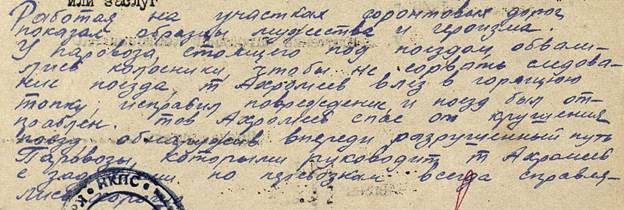 или заслуг
Работая на участках фронтовых дорог
показал образцы мужества и героизма.
У паровоза, стоящего под поездом, обвали-
лись колосники, чтобы не сорвать следова-
ние поезда, т Ахромеев влез в горящую
топку, исправил повреждение, и поезд был от-
правлен. тов Ахромеев спас от крушения
поезд, обнаружив впереди разрушенный путь
Паровозы, которыми руководит т Ахромеев
с по перевозкам всегда справля-
лись
НКПС